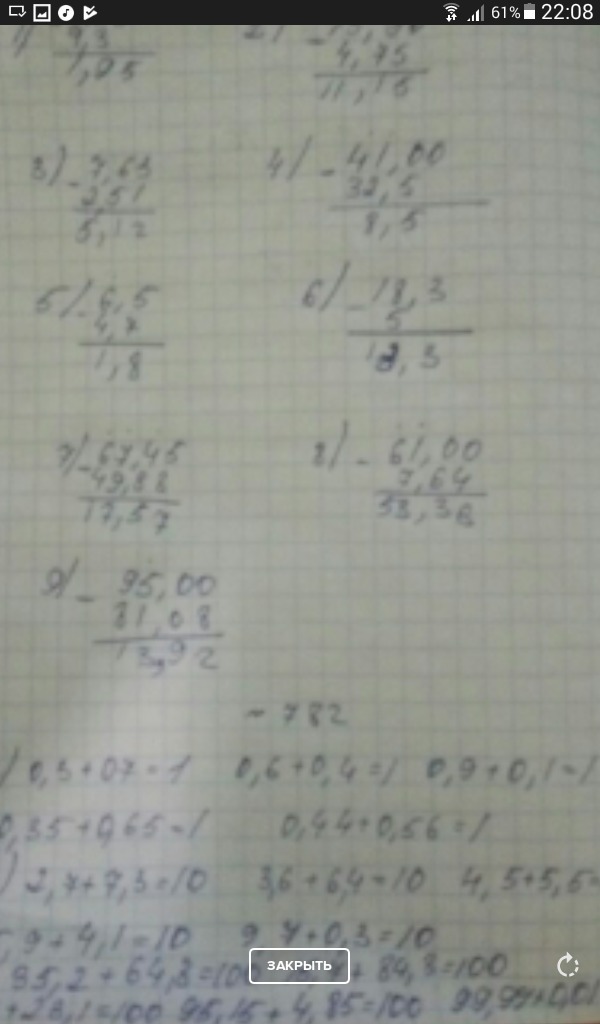 61% 22:08
1) 9,3
4,75
1,95 11,15
3) - 7,63 4) - 41,00
2,51 32,5
5,12 8,5
5) - 6,5 6) - 18,3
4,7 5
1,8 13,3
7) - 67,45 8) - 61,00
49,88 7,64
17,57 53,36
9) - 95,00
81,08
13,92
~ 782
) 0,3+07=1 0,6+0,4=1 0,9+0,1=1
0,35+0,65=1 0,44+0,56=1
) 2,7+7,3=10 3,6+6,4=10 4,5+5,5=
,9+4,1=10 9,7+0,3=10
ЗАКРЫТЬ
=100
=100 95,15+4,85=100 99,99+0,01